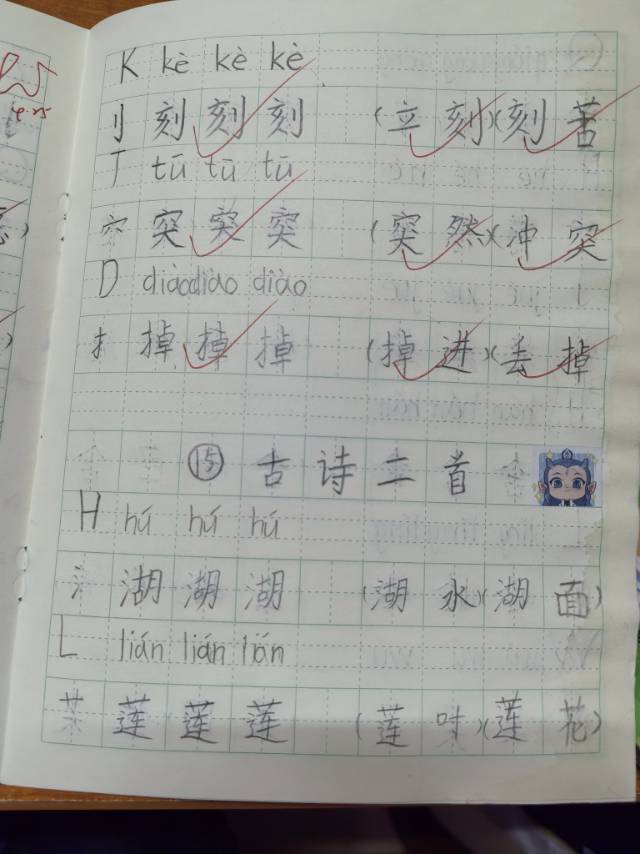 K kè kè kè
刂 刻 刻 刻 (立 刻)(刻 苦
T tū tū tū
穴 突 突 突 (突 然)(冲 突
D diào diào diào
扌 掉 掉 掉 (掉 进)(丢 掉
⑮ 古 诗 二 首
H hú hú hú
氵 湖 湖 湖 (湖 水)(湖 面)
L lián lián lián
莲 莲 莲 (莲 叶)(莲 花)